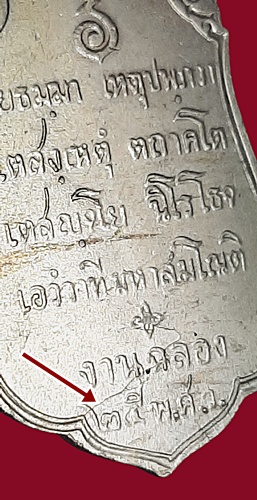 ยธมฺมา เหตุปฺปภวา
เตสํเหตุํ ตถาคโต
เตสญฺจโย นิโรโธจ
เอวํวาที มหาสมโณติ
งานฉลอง
๒๕ พ.ศ.ว.